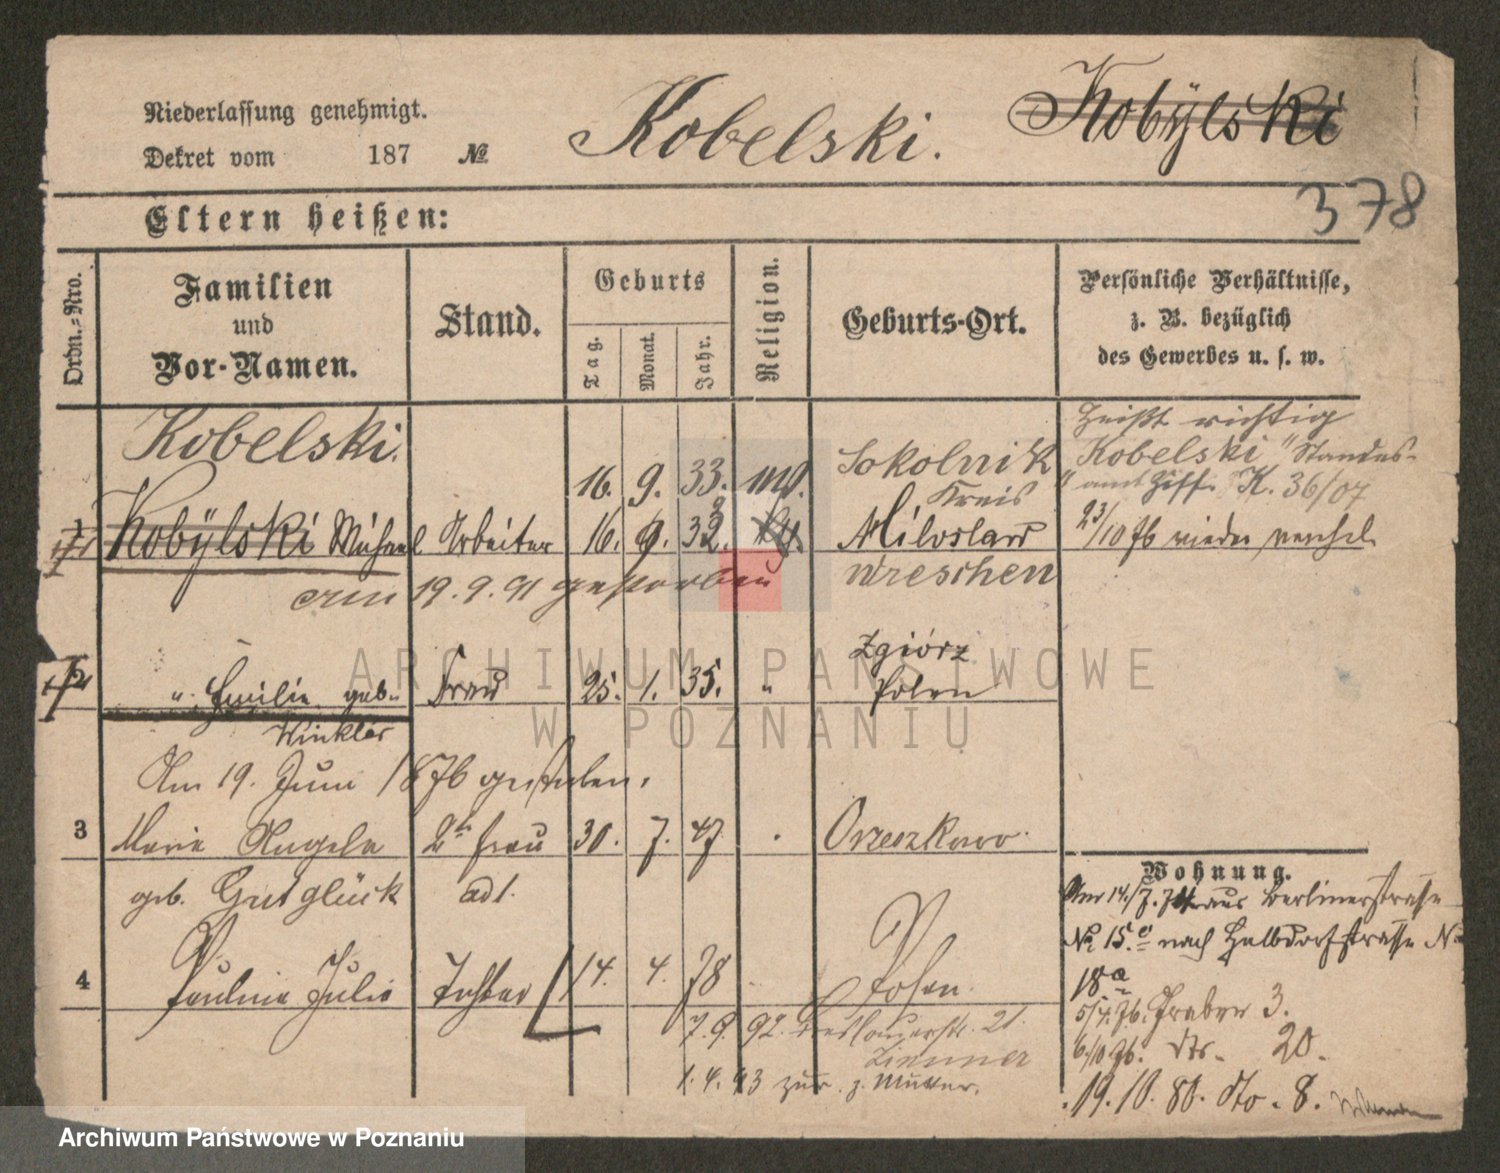 Niederlassung genehmigt.
Dekret vom 187 №
Kobelski.
Kobÿlski
378
Eltern heißen:
Ordn.-Nro.
Familien
und
Vor-Namen.
Stand.
Geburts
Tag.
Monat.
Jahr.
Religion.
Geburts-Ort.
Persönliche Verhältnisse,
z. B. bezüglich
des Gewerbes u. s. w.
Kobelski.
16. 9. 33.
Sokolnik
Kreis
heißt richtig
Kobelski "Standes-
" amt Ziff. K. 36/07
1
Kobÿlski Michael Arbeiter 16. 9. 32.
Miloslaw
23/10 76 wieder
Wreschen
am 19.9.91 gestorben
2
" Emilie geb. Frau 25. 1. 35. "
Zgiórz
Polen
Winkler
Am 19. Juni 1876 gestorben.
3
Marie Angela 2te Frau 30. 7. 47
Orzeszkowo.
geb. Gutglück
adt.
4
Pauline Julie Tochter 14. 4. 78
Posen.
7.9.92. Breslauerstr. 21.
Zimmer
1.4.93 zur. z. Mutter.
Wohnung.
Am 14./7. aus Berlinerstrasse
No. 15.c nach Halbdorfstrasse No
18a
5/4.76. Graben 3.
6/10 76. dto. 20.
19.10.80. dto. 8.
ARCHIWUM PAŃSTWOWE
W POZNANIU
Archiwum Państwowe w Poznaniu